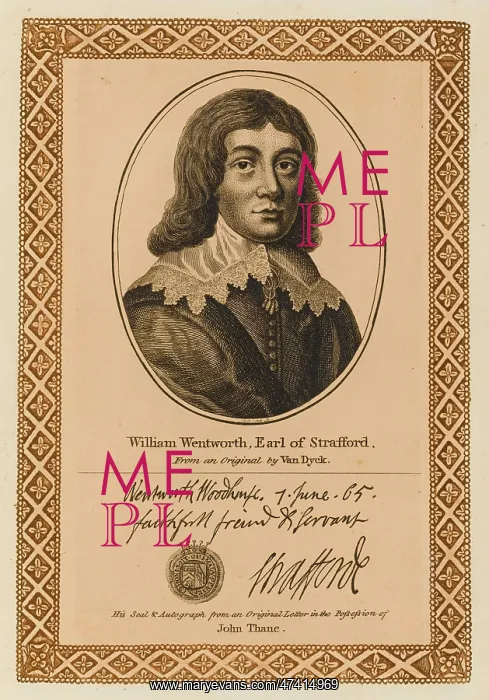 ME
PL
William Wentworth, Earl of Strafford.
From an Original by Van Dyck.
ME
PL
Wentworth Woodhouse. 7. June. 65.
faithfull freind & servant
Strafforde
His Seal & Autograph from an Original Letter in the Possession of
John Thane.
www.maryevans.com/47414969